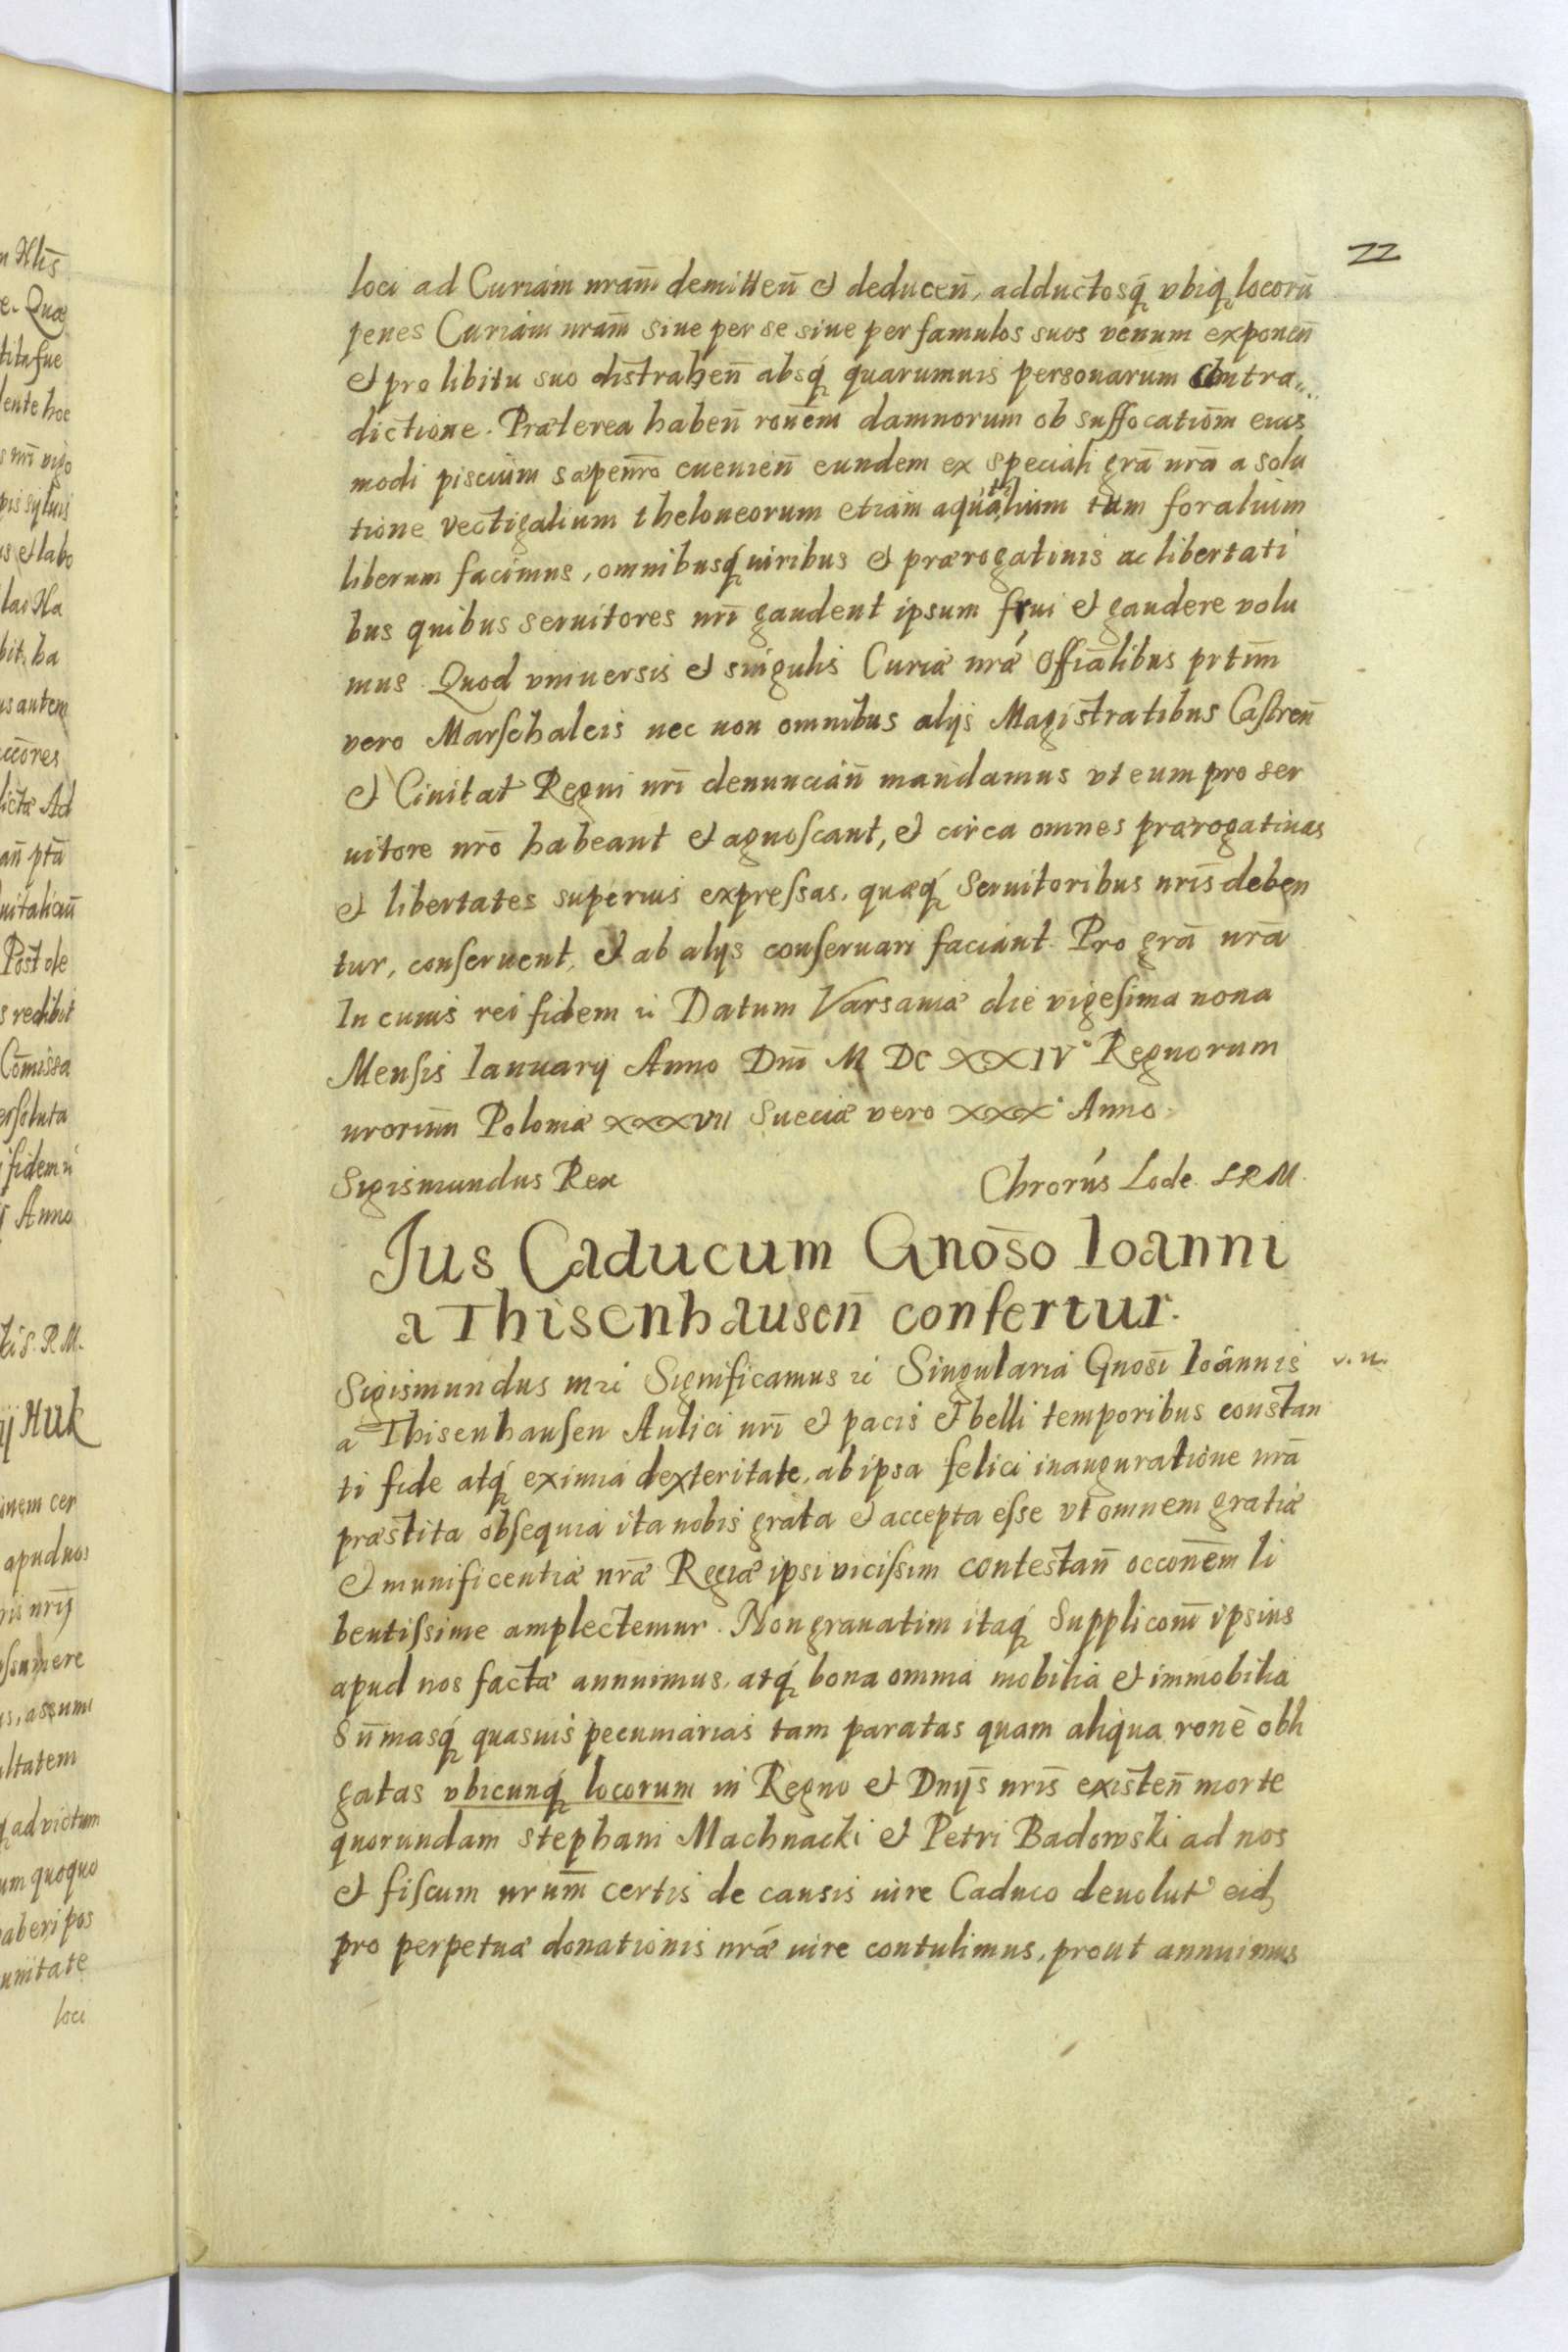 22
loci ad Curiam nram̄ demitten̄ et deducen̄, adductosq́ vbiq́ locorū
penes Curiam nram̄ siue per se siue per famulos suos venum exponen̄
et pro libitu suo distrahen̄ absq́ quarumuis personarum contra
dictione. Præterea haben̄ ronem̄ damnorum ob suffocatiom̄ eius
modi piscium sæpenrō euenien̄ eundem ex speciali grā nrā a solu
tione vectigalium theloneorum etiam aquatilium tum foralium
liberum facimus, omnibusq́ iuribus et prærogatiuis ac libertati
bus quibus seruitores nrī gaudent ipsum frui et gaudere volu
mus. Quod vniuersis et singulis Curiæ nræ Offialibus prtim̄
vero Marschalcis nec non omnibus alijs Magistratibus Castren̄
et Ciuitat Regni nrī denuncian̄ mandamus vt eum pro ser
uitore nrō habeant et agnoscant, et circa omnes prærogatiuas
et libertates superius expressas, quæq́ Seruitoribus nrīs deben
tur, conseruent, et ab alijs conseruari faciant. Pro grā nrā
In cuius rei fidem ꝛc Datum Varsauiæ die vigesima nona
Mensis Ianuarij Anno Dnī M DC XXIV° Regnorum
nrorum Poloniæ XXXVII Sueciæ vero XXX° Anno.
Sigismundus Rex
Chrorús Lode. S R M.
Jus Caducum Gnoso̅ Ioanni
a Thisenhausen̄ confertur.
Sigismundus mꝛc Significamus ꝛc Singularia Gnosī Ioannis
v. n.
a Thisenhausen Aulici nrī et pacis et belli temporibus constan
ti fide atq́ eximia dexteritate, ab ipsa felici inauguratione nrā
præstita obsequia ita nobis grata et accepta esse vt omnem gratiæ
et munificentiæ nrǣ Regiæ ipsi vicissim contestan̄ occonem̄ li
bentissime amplectemur. Non grauatim itaq́ Supplicom̄ ipsius
apud nos factæ annuimus, atq́ bona omnia mobilia et immobilia
Sūmasq́ quasuis pecuniarias tam paratas quam aliqua ronè obli
gatas vbicunq́ locorum in Regno et Dnijs̄ nrīs existen̄ morte
quorundam Stephani Machnacki et Petri Badowski ad nos
et fiscum nrum̄ certis de causis iure Caduco deuolut eid
pro perpetuæ donationis nræ iure contulimus, prout annuimus